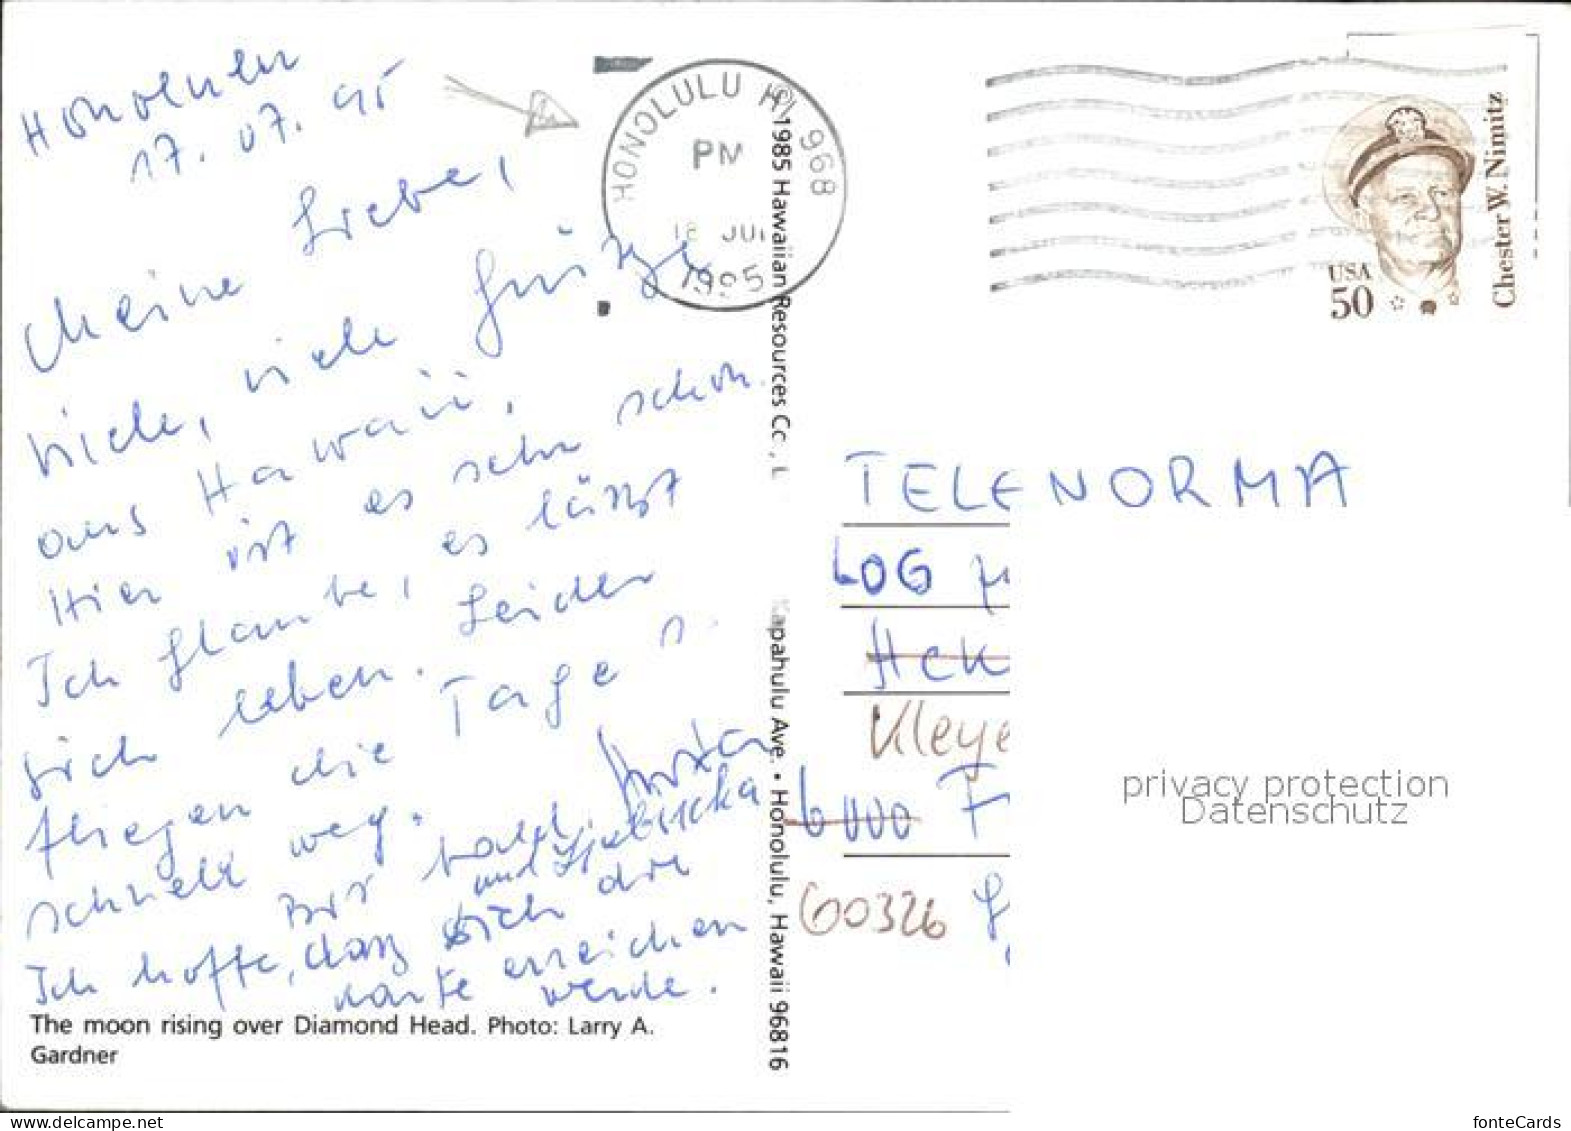 Honolulu
17.07.95
Meine Liebe,
viele, viele Grüße
aus Hawaii.
Hier ist es sehr schön.
Ich glaube, es läßt
sich leben. Leider
fliegen die Tage so
schnell weg.
Bis bald.
und
Ich hoffe, daß dich die
Karte erreichen
werde.
The moon rising over Diamond Head. Photo: Larry A.
Gardner
HONOLULU HI 968
PM
18 JUL
1995
© 1985 Hawaiian Resources Co., L
Kapahulu Ave. • Honolulu, Hawaii 96816
USA
50
Chester W. Nimitz
TELENORMA
LOG
Kleye
6000 F
60326
privacy protection
Datenschutz
www.delcampe.net
fonteCards